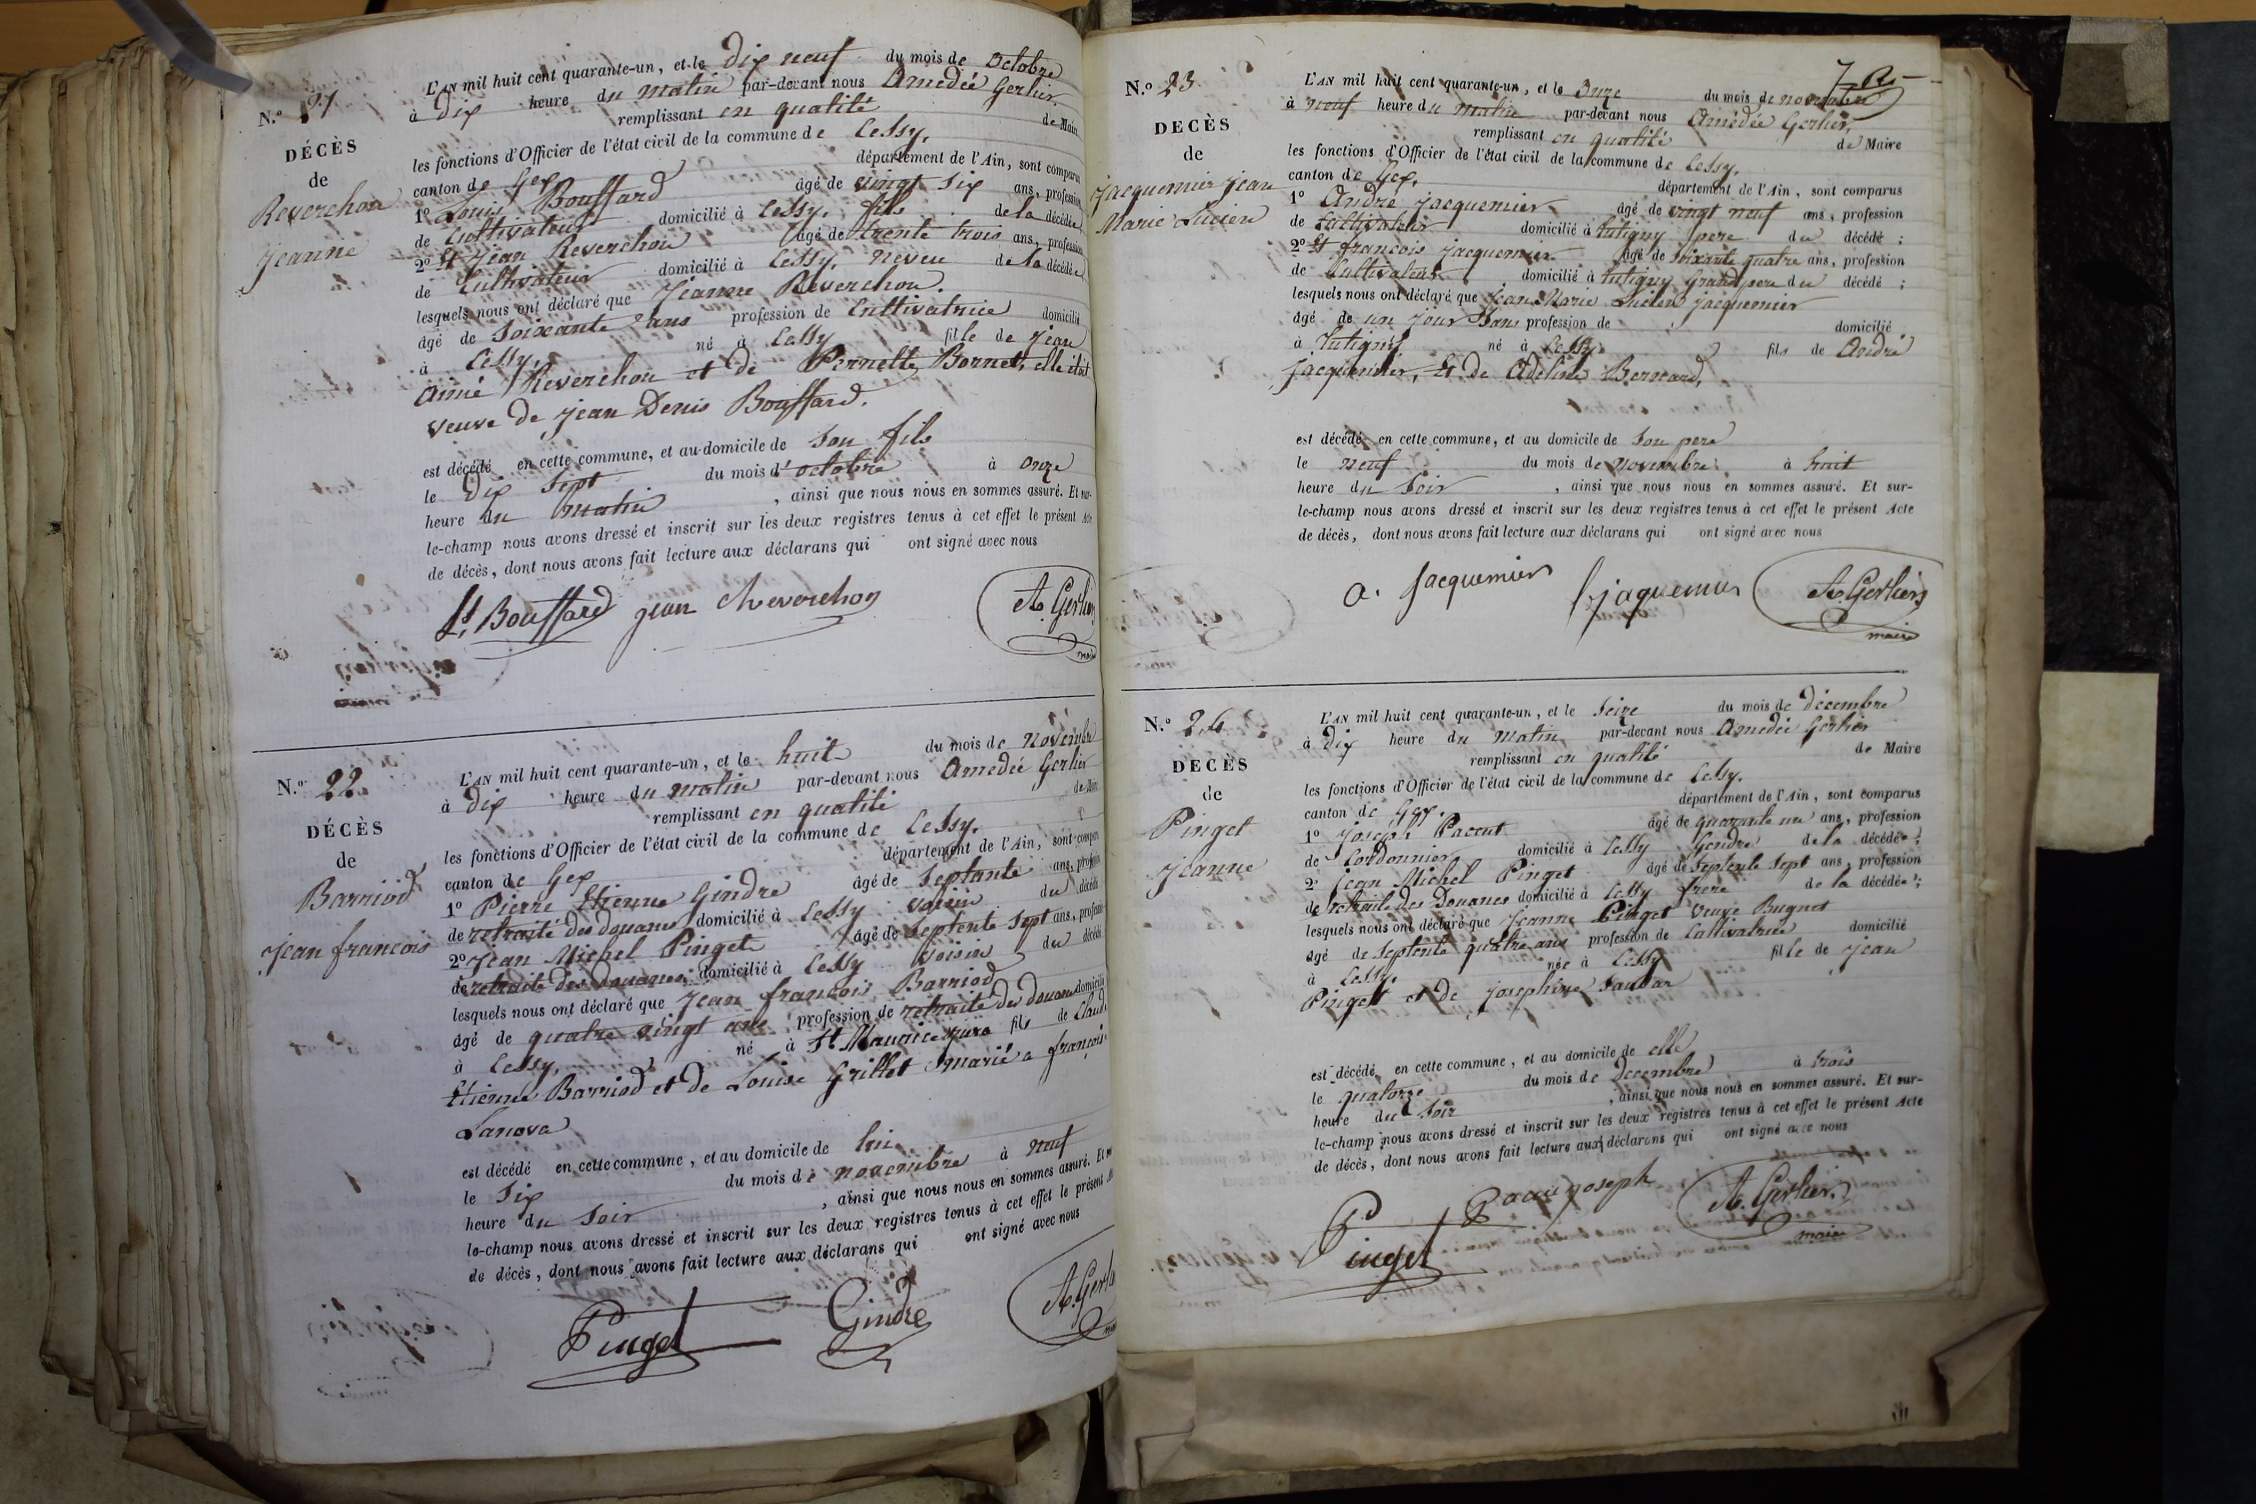 N.º 21
DÉCÈS
de
Reverchon
Jeanne
L'AN mil huit cent quarante-un, et le dix neuf du mois de octobre
à dix heure du matin par-devant nous Amedée Gerlier,
remplissant en qualité de Maire
les fonctions d'Officier de l'état civil de la commune de Cessy,
canton de Gex, département de l'Ain, sont comparus
1º Louis Bouffard âgé de vingt six ans, profession
de Cultivateur domicilié à Cessy, fils de la décédée
2º Et Jean Reverchon âgé de trente trois ans, profession
de Cultivateur domicilié à Cessy, neveu de la décédée
lesquels nous ont déclaré que Jeanne Reverchon,
âgé de Soixante ans profession de Cultivatrice domicilié
à Cessy, né à Cessy fille de Jean
Aimé Reverchon et de Pernette Bornet, elle était
veuve de Jean Denis Bouffard.
est décédé en cette commune, et au domicile de Son fils
le Dix Sept du mois d'octobre à onze
heure du matin, ainsi que nous nous en sommes assuré. Et sur-
le-champ nous avons dressé et inscrit sur les deux registres tenus à cet effet le présent Acte
de décès, dont nous avons fait lecture aux déclarans qui ont signé avec nous
Ls. Bouffard Jean Reverchon A. Gerlier
maire
N.º 22
DÉCÈS
de
Barriod
Jean francois
L'AN mil huit cent quarante-un, et le huit du mois de Novembre
à dix heure du matin par-devant nous Amedée Gerlier
remplissant en qualité de Maire
les fonctions d'Officier de l'état civil de la commune de Cessy,
canton de Gex département de l'Ain, sont comparus
1º Pierre Etienne Gindre âgé de Septante ans, profession
de retraité des douanes domicilié à Cessy voisin du décédé
2º Jean Michel Pinget âgé de Septente Sept ans, profession
de retraité des douanes domicilié à Cessy Voisin du décédé
lesquels nous ont déclaré que Jean francois Barriod
âgé de quatre vingt ans profession de retraité des douanes domicilié
à Cessy, né à St Maurice jura fils de Claude
Etienne Barriod et de Louise Grillet marié a françoise
Lanova
est décédé en cette commune, et au domicile de lui
le Six du mois de novembre à neuf
heure du Soir, ainsi que nous nous en sommes assuré. Et sur-
le-champ nous avons dressé et inscrit sur les deux registres tenus à cet effet le présent Acte
de décès, dont nous avons fait lecture aux déclarans qui ont signé avec nous
Pinget Gindre A. Gerlier
N.º 23
DECÈS
de
Jacquemier Jean
Marie Lucien
L'AN mil huit cent quarante-un, et le onze du mois de novembre
à neuf heure du matin par-devant nous Amédée Gerlier,
remplissant en qualité de Maire
les fonctions d'Officier de l'état civil de la commune de Cessy,
canton de Gex, département de l'Ain, sont comparus
1º André Jacquemier âgé de vingt neuf ans, profession
de Cultivateur domicilié à Tutigny pere du décédé ;
2º Et francois Jacquemier âgé de Soixante quatre ans, profession
de Cultivateur domicilié à Tutigny Grand pere du décédé ;
lesquels nous ont déclaré que Jean Marie Lucien Jacquemier
âgé de un jour Sans profession de domicilié
à Tutigny né à Cessy fils de André
Jacquemier, Et de Adeline Bernard,
est décédé en cette commune, et au domicile de Son pere
le neuf du mois de novembre à huit
heure du Soir, ainsi que nous nous en sommes assuré. Et sur-
le-champ nous avons dressé et inscrit sur les deux registres tenus à cet effet le présent Acte
de décès, dont nous avons fait lecture aux déclarans qui ont signé avec nous
a. Jacquemier f. jaquemier A. Gerlier
maire
N.º 24
DECÈS
de
Pinget
Jeanne
L'AN mil huit cent quarante-un, et le Seize du mois de décembre
à dix heure du matin par-devant nous Amedée Gerlier
remplissant en qualité de Maire
les fonctions d'Officier de l'état civil de la commune de Cessy,
canton de Gex, département de l'Ain, sont comparus
1º Joseph Pacout âgé de quarante un ans, profession
de Cordonnier domicilié à Cessy Gendre de la décédée ;
2º Jean Michel Pinget âgé de Septente Sept ans, profession
de retraité des Douanes domicilié à Cessy frere de la décédée ;
lesquels nous ont déclaré que Jeanne Pinget veuve Bugnet
âgé de Septente quatre ans profession de Cultivatrice domicilié
à Cessy née à Cessy fille de Jean
Pinget et de Josephine
est décédé en cette commune, et au domicile de elle
le quatorze du mois de Decembre à trois
heure du Soir, ainsi que nous nous en sommes assuré. Et sur-
le-champ nous avons dressé et inscrit sur les deux registres tenus à cet effet le présent Acte
de décès, dont nous avons fait lecture aux déclarans qui ont signé avec nous
Pinget joseph A. Gerlier
maire